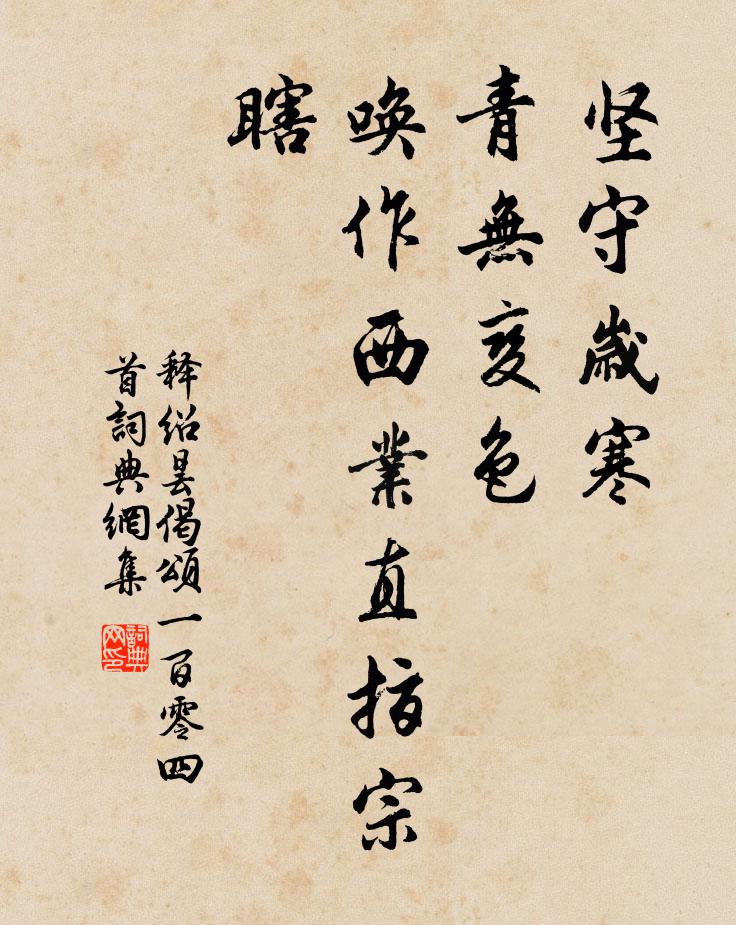 坚守歲寒
青無变色
唤作西業直指宗
瞎
释绍昙偈頌一百零四
首詞典網集
詞典网印